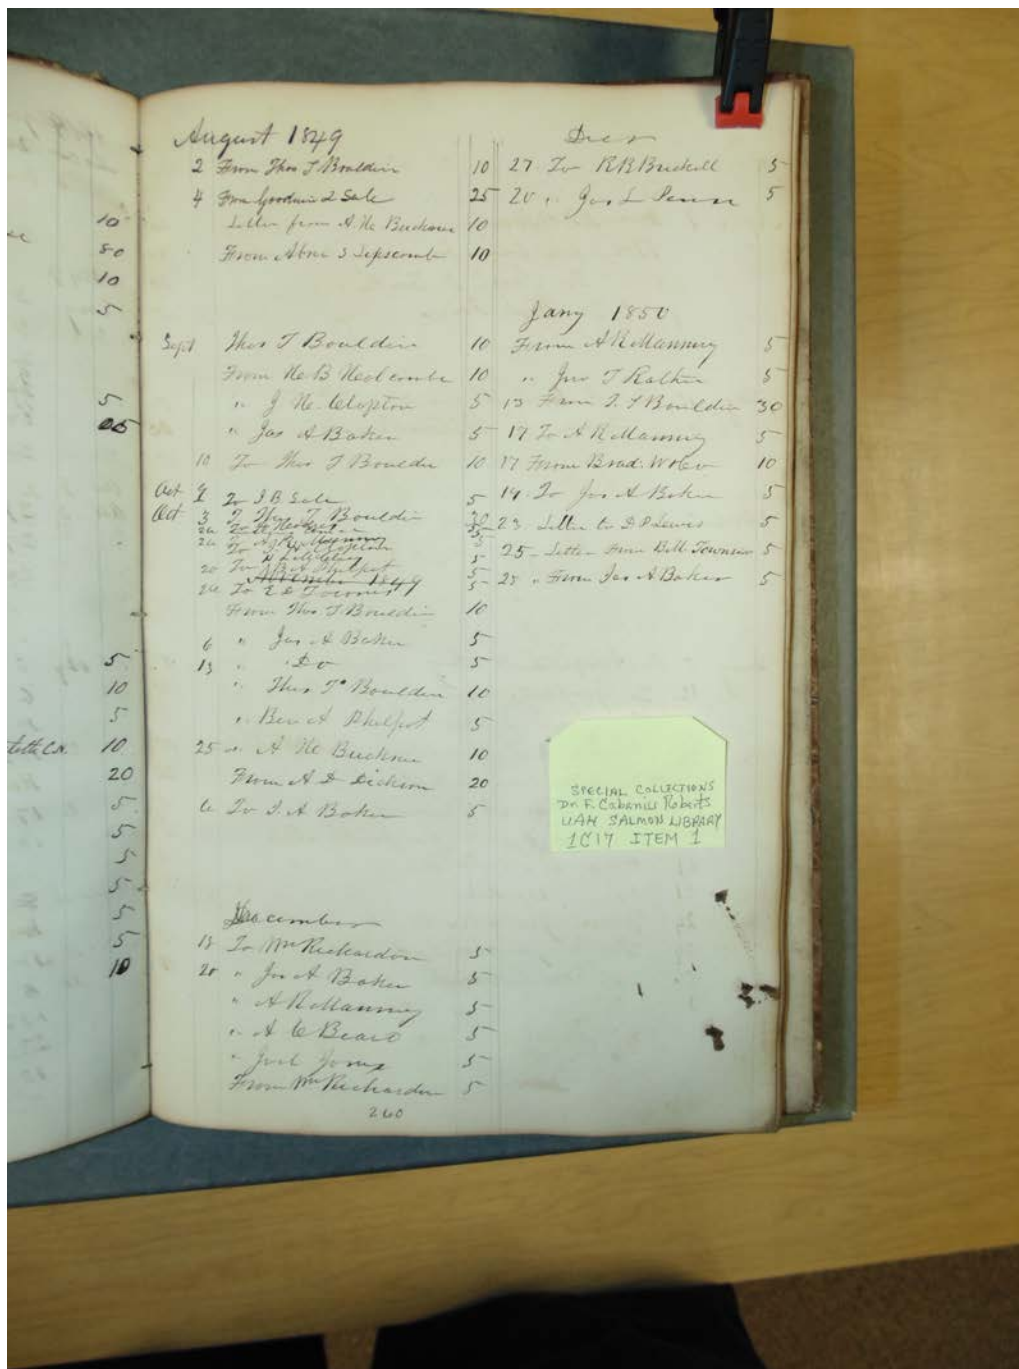 10
80
10
5
5
5
10
5
10
20
5
5
5
5
5
10
August 1849
2 From Thos T Bouldin 10
4 From Goodwin & Sale 25
Letter from A. Mc Buckner 10
From Abner S Lipscomb 10
Sept Thos T Bouldin 10
From B 10
" J Clopton 5
" Jas A Baker 5
10 To Thos T Bouldin 10
Oct 1 To J B Sale 5
Oct 3 T Thos T. Bouldin
20 To Philpot 5
November 1849
To Townes 5
From Thos. T. Bouldin 10
6 " Jas A Baker 5
13 " Do 5
" Thos T. Bouldin 10
" Ben A Philpot 5
25 " A Buckner 10
From A D Dickson 20
6 To J. A Baker 5
December
18 To Richardson 5
20 " Jas A Baker 5
" A R Manning 5
" A C Beard 5
" Joel Jones 5
From Richardson 5
260
Decr
27 To R B 5
20 " Jas L Penn 5
Jany 1850
From A R Manning 5
" Jno T Rather 5
13 From T. T Bouldin 30
17 To A R Manning 5
17 From Brad. W & Co 10
19. To Jas A Baker 5
23 . Letter to D P Lewis 5
25 - Letter From 5
28 " From Jas A Baker 5
SPECIAL COLLECTIONS
Dr. F. Cabaniss Roberts
UAH SALMON LIBRARY
1C17 ITEM 1